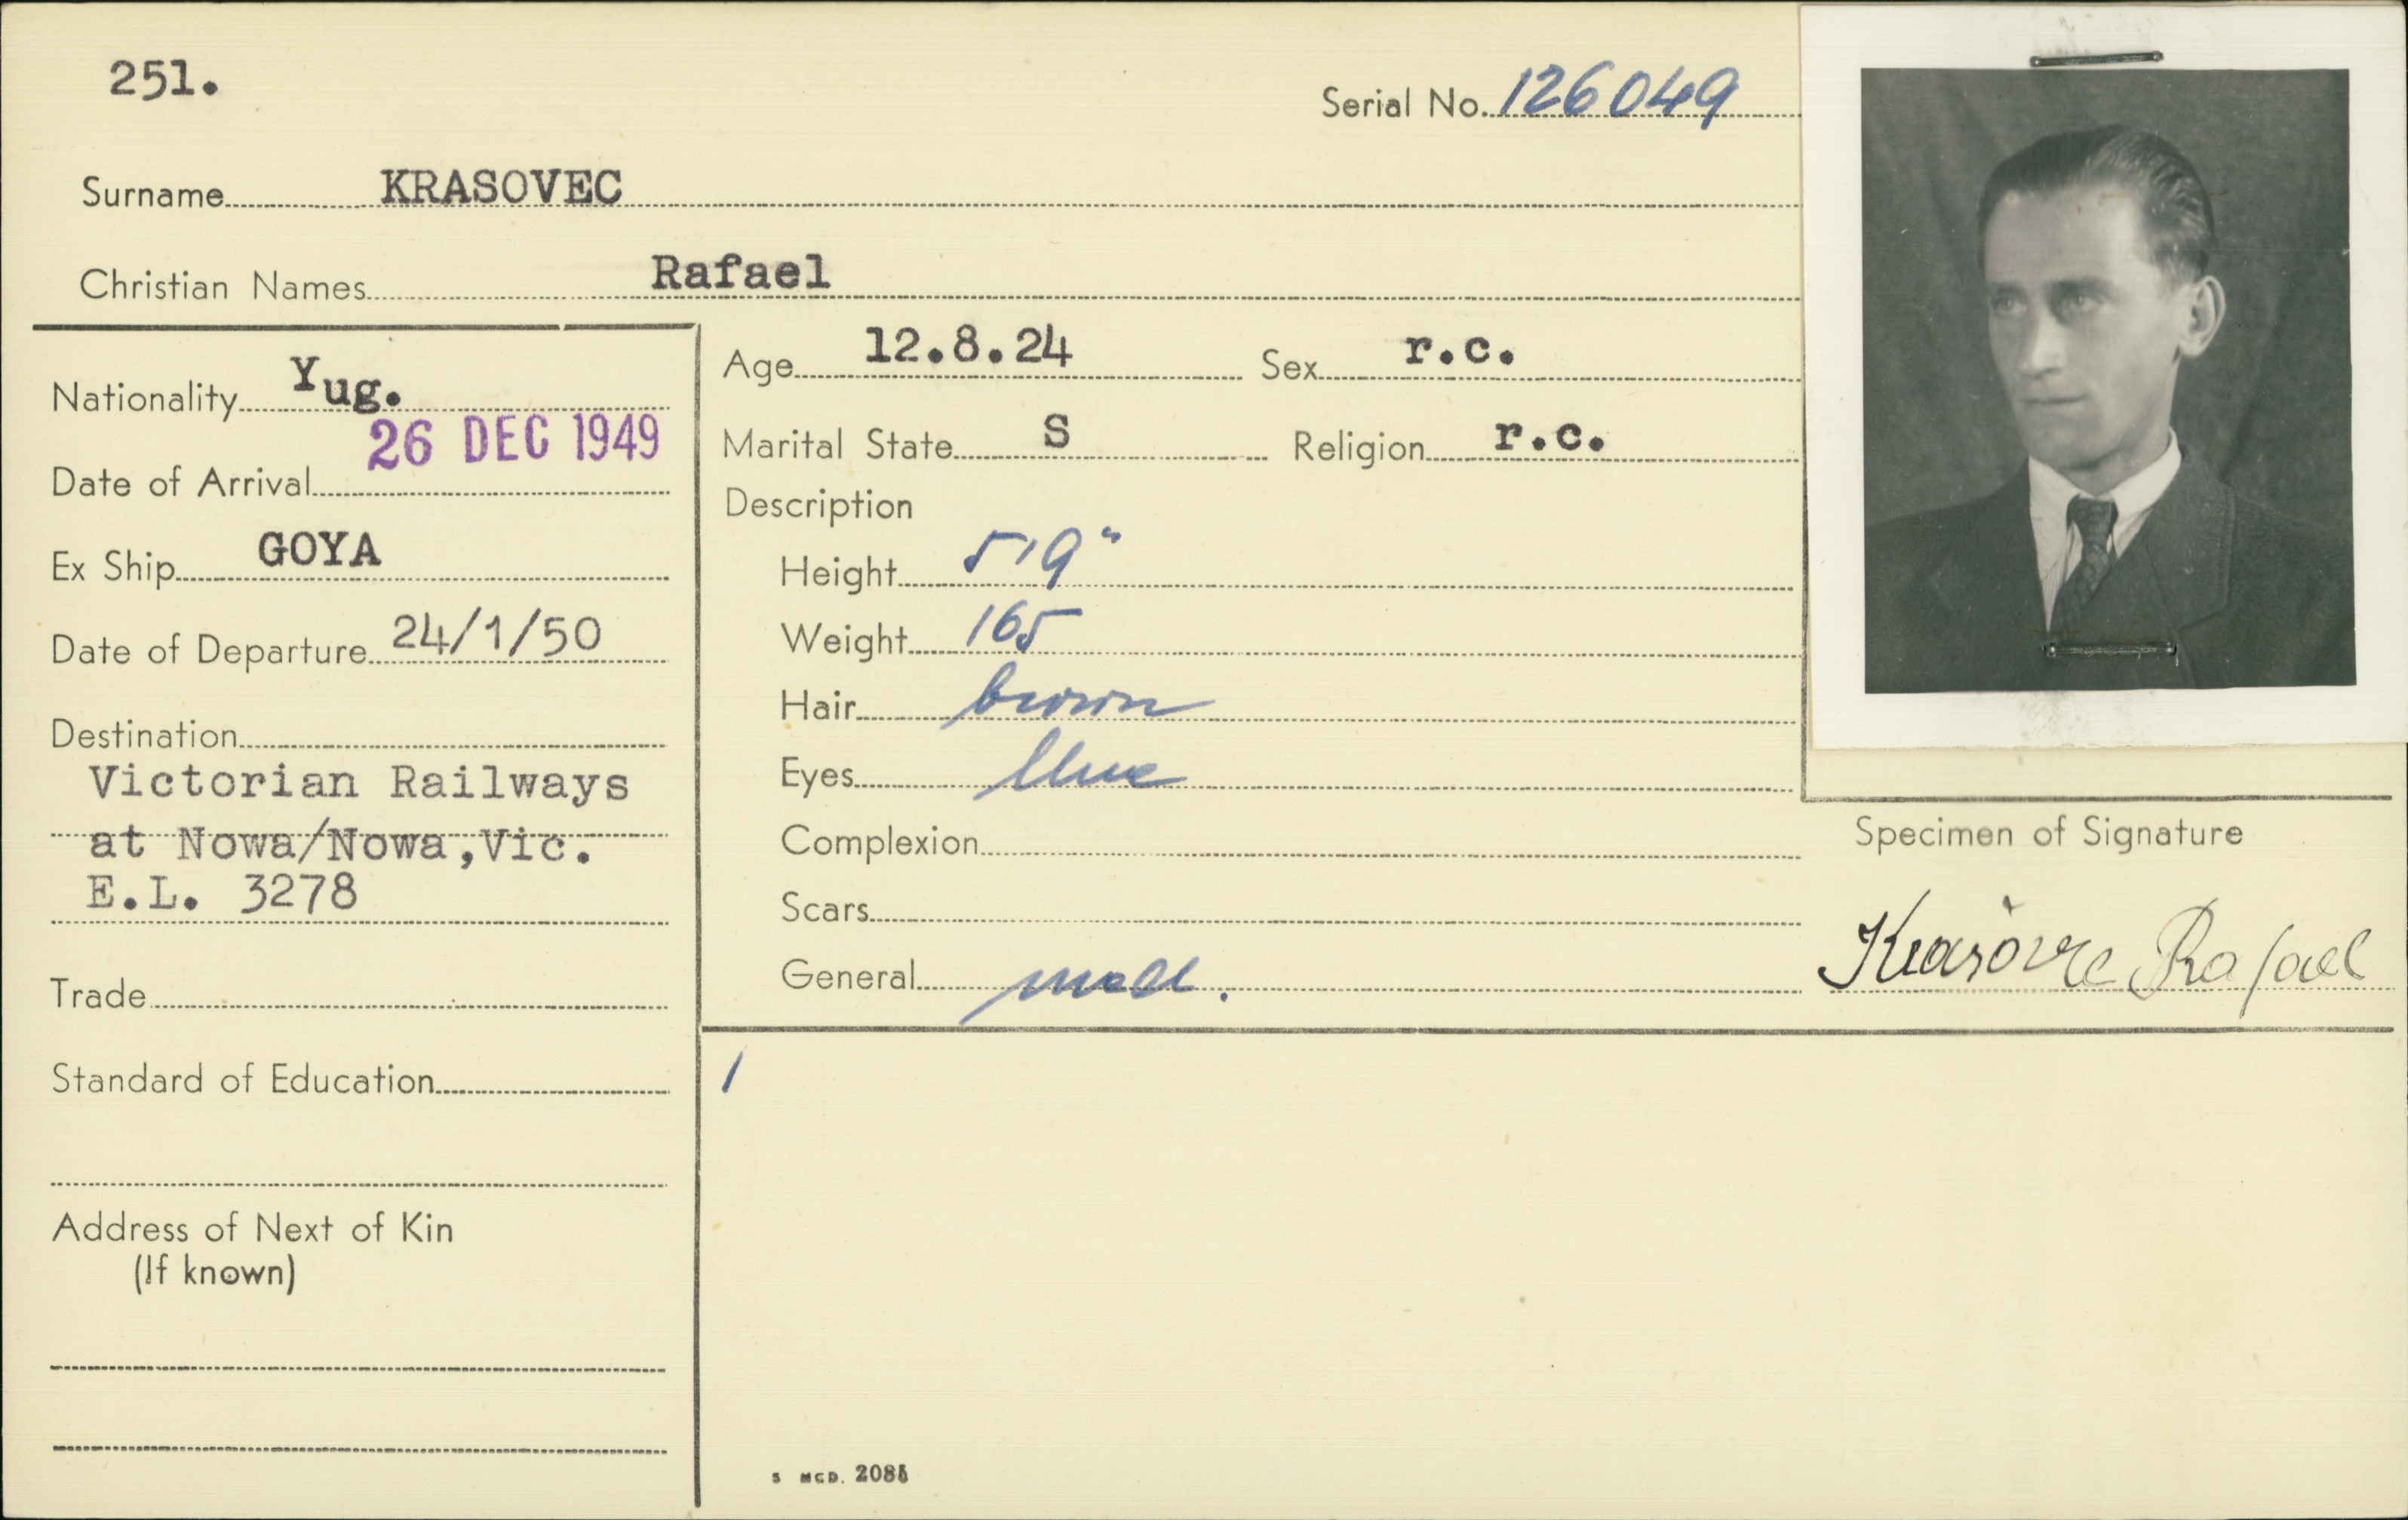 251.
Serial No. 126049
Surname KRASOVEC
Christian Names Rafael
Nationality Yug.
Date of Arrival 26 DEC 1949
Ex Ship GOYA
Date of Departure 24/1/50
Destination
Victorian Railways
at Nowa/Nowa,Vic.
E.L. 3278
Trade
Standard of Education
Address of Next of Kin
(If known)
Age 12.8.24 Sex r.c.
Marital State S Religion r.c.
Description
Height 5'9"
Weight 165
Hair brown
Eyes blue
Complexion
Scars
General med.
1
Specimen of Signature
Krasovec Rafael